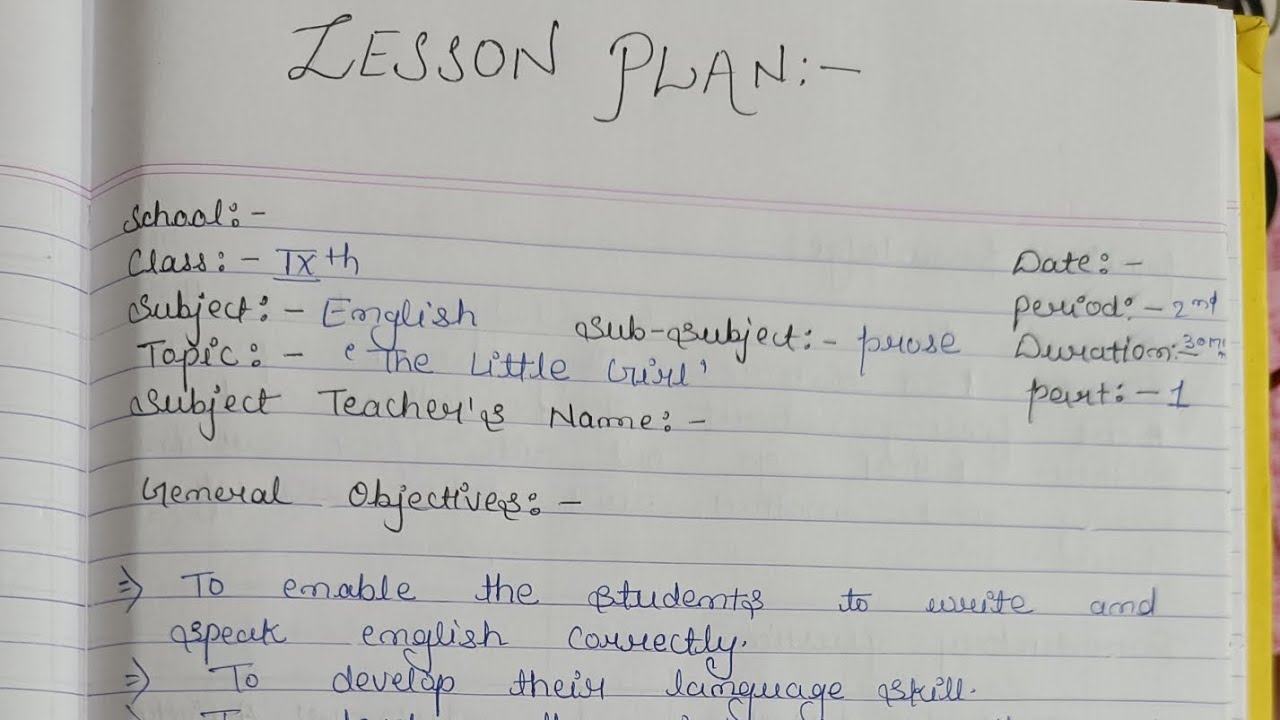 LESSON PLAN:-
School:-
Class:- IXth
Date:-
Subject:- English
Sub-Subject:- prose
period:- 2nd
Topic:- 'The Little Girl'
Duration:- 30m
Subject Teacher's Name:-
part:- 1
General Objectives:-
⇒ To enable the students to write and
speak english correctly.
⇒ To develop their language skill.